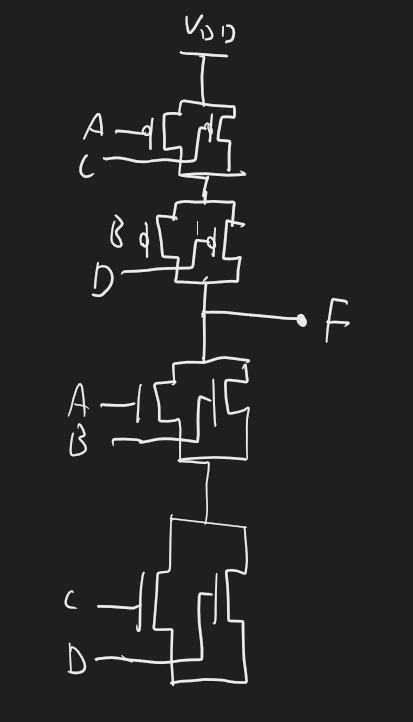 VDD
A
C
B
D
F
A
B
C
D